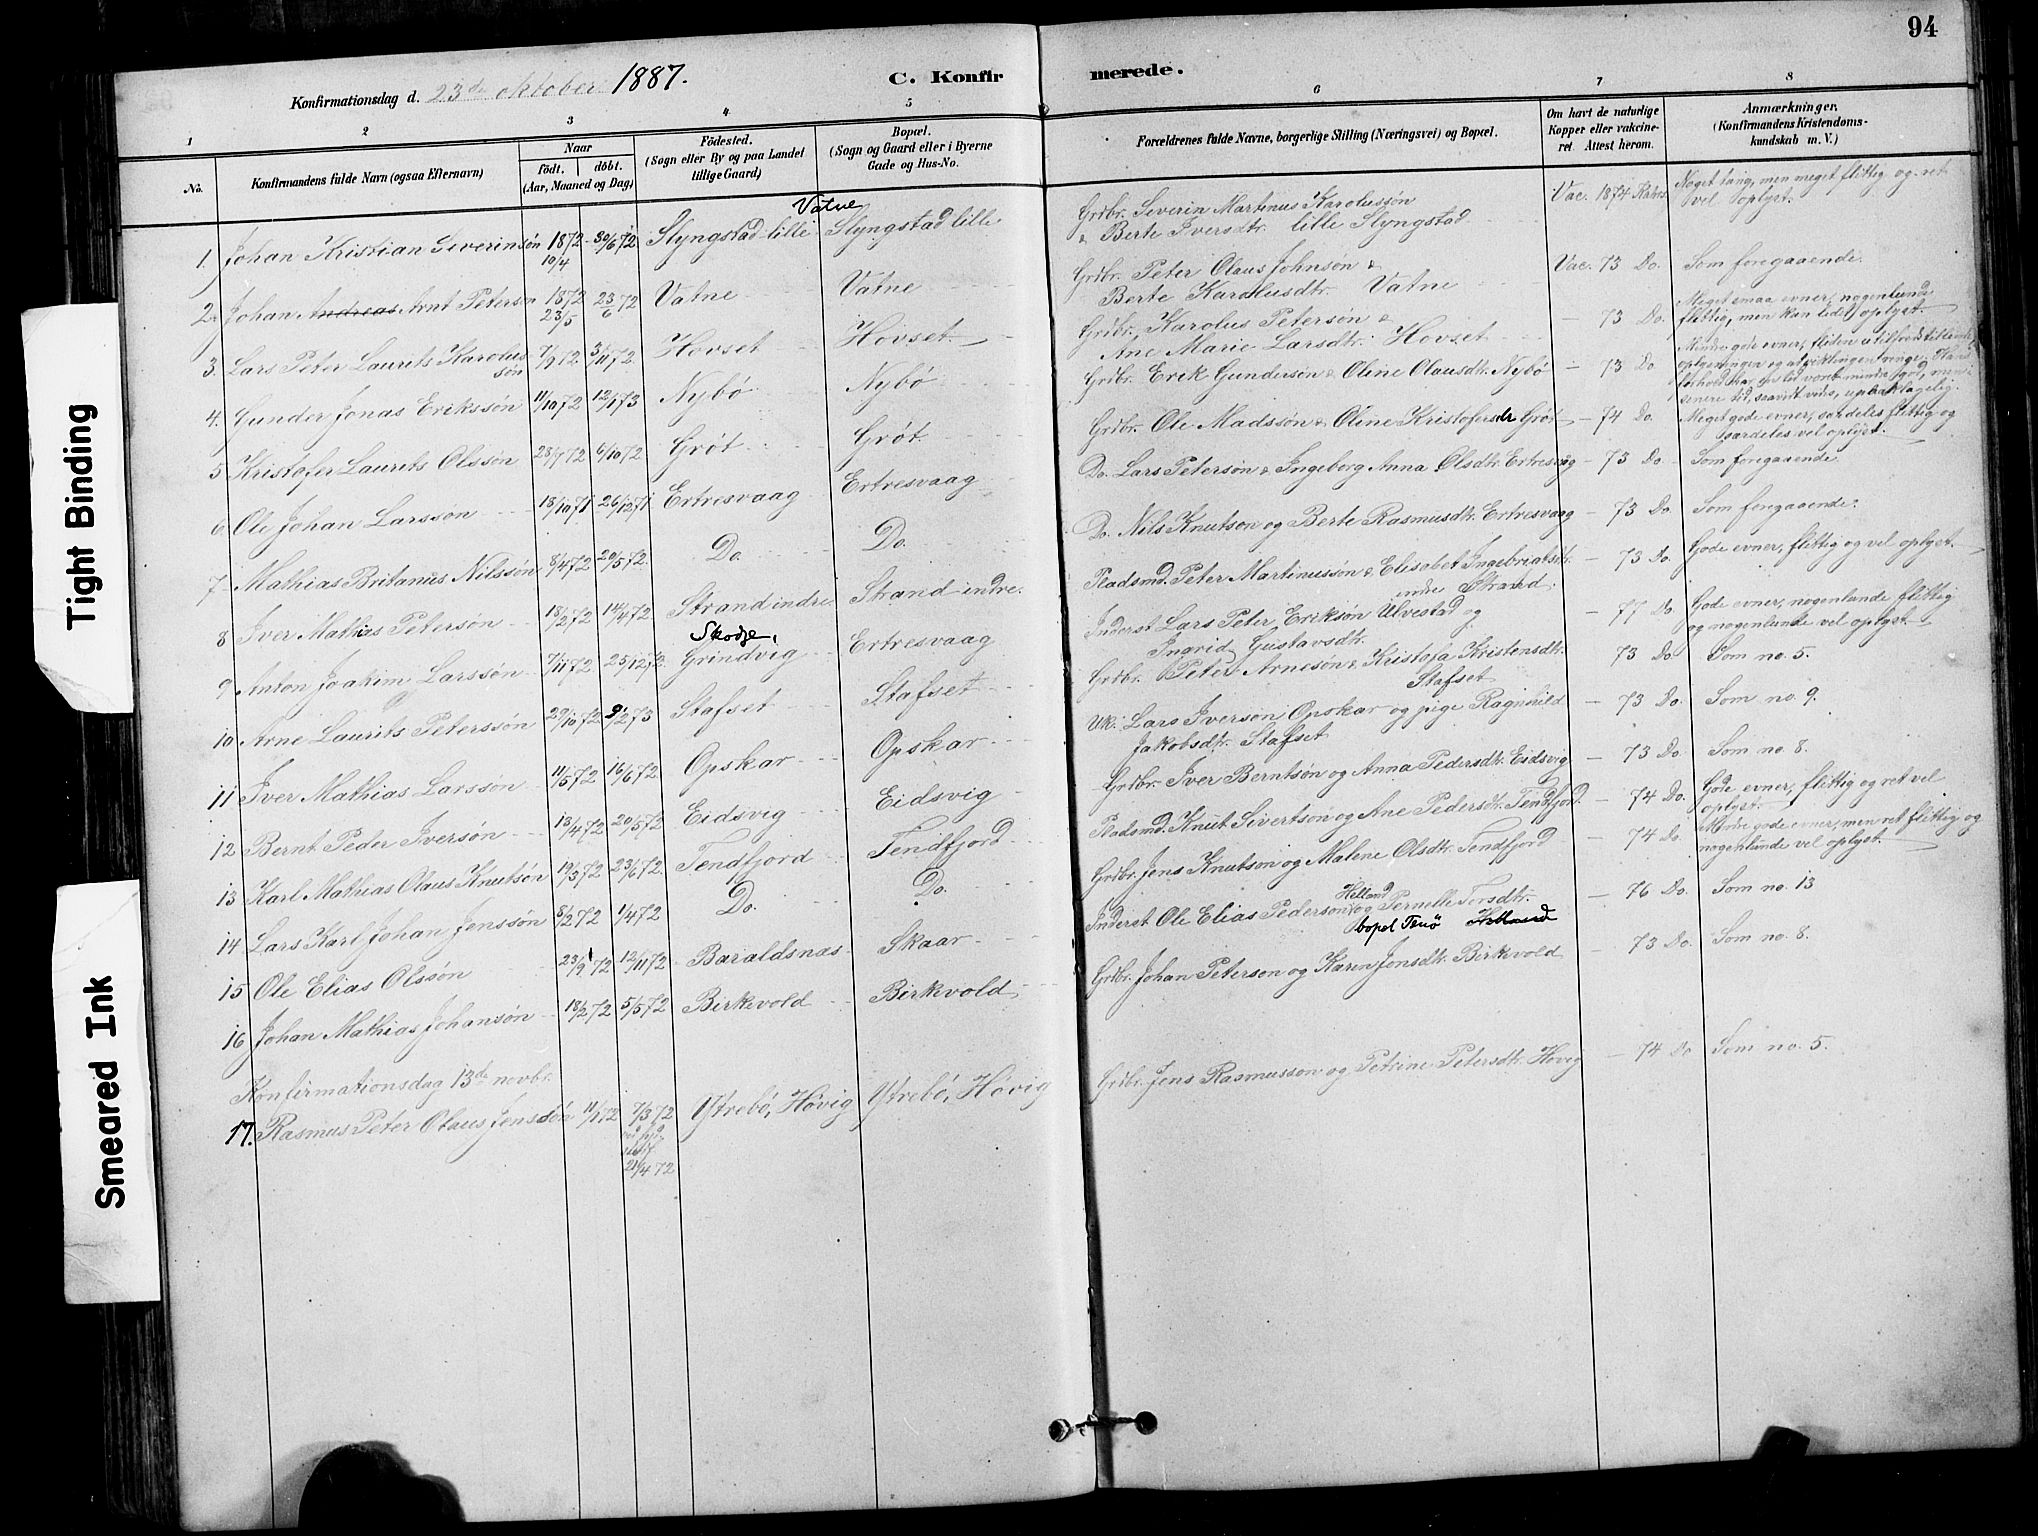 94
Konfirmationsdag d. 23de oktober 1887.
C. Konfirmerede.
1 2 3 4 5 6 7 8
No.
Konfirmandens fulde Navn (ogsaa Efternavn)
Naar
födt. döbt.
(Aar, Maaned og Dag)
Födested.
(Sogn eller By og paa Landet
tillige Gaard)
Bopæl.
(Sogn og Gaard eller i Byerne
Gade og Hus-No.
Forældrenes fulde Navne, borgerlige Stilling (Næringsvei) og Bopæl.
Om havt de naturlige
Kopper eller vakcine-
ret. Attest herom.
Anmærkninger.
(Konfirmandens Kristendoms-
kundskab m. V.)
Vatne
1. Johan Kristian Severinsön 1872 10/4 30/6 72 Slyngstad lille Slyngstad lille Grdbr. Severin Martinus Karolussön & Berte Iversdtr. lille Slyngstad Vac. 1874 Noget tung, men meget flittig og ret vel oplyst.
2. Johan Andreas Arnt Petersön 1872 23/5 23/6 72 Vatne Vatne Grdbr. Peter Olaus Johnsön & Berte Karolusdtr. Vatne Vac. 73 Do. Som foregaaende.
3. Lars Peter Laurits Karolussön 7/9 72 3/11 72 Hovset Hovset Grdbr. Karolus Petersön & Ane Marie Larsdtr. Hovset – 73 Do. Meget smaa evner, nogenlunde flittig, men kun lidet oplyst.
4. Gunder Jonas Erikssön 11/10 72 12/1 73 Nybö Nybö Grdbr. Erik Gundersön & Oline Olausdtr. Nybö – 73 Do Mindre gode evner, fliden utilfredsstillende,
5 Kristofer Laurits Olssön 28/7 72 6/10 72 Gröt Gröt Grdbr. Ole Madssön & Oline Kristofersdr Gröt – 74 Do. Meget gode evner, særdeles flittig og særdeles vel oplyst.
6 Ole Johan Larsson 18/10 71 26/12 71 Ertresvaag Ertresvaag Do. Lars Petersön & Ingeborg Anna Olsdtr. Ertresvåg – 73 Do. Som foregaaende
7 Mathias Britanus Nilssön 8/4 72 20/5 72 Do. Do. Do. Nils Knutsön og Berte Rasmusdtr. Ertresvaag – 73 Do. Som foregaaende.
8 Iver Mathias Petersön 18/2 72 14/4 72 Strand indre Strand indre. Pladsmd. Peter Martinussön & Elisabet Ingebriktsdtr. indre Strand – 73 Do. Gode evner, flittig og vel oplyst.
9 Anton Joakim Larssön 7/11 72 25/12 72 Skodje, Grindvig Ertresvaag Inderst Lars Peter Eriksön Ulvestad og Ingrid Gustavsdtr. – 77 Do. Gode evner, nogenlunde flittig og nogenlunde vel oplyst.
10 Arne Laurits Peterssön 29/10 72 9/2 73 Stafset Stafset Grdbr. Peter Arnesön & Kristofa Kristensdtr. Stafset 73 Do. Som no. 5.
11 Iver Mathias Larssön 11/5 72 16/6 72 Opskar Opskar Uk. Lars Iversön Opskar og pige Ragnhild Jakobsdtr. Stafset – 73 Do. Som no. 9.
12 Bernt Peder Iversön 13/4 72 20/5 72 Eidsvig Eidsvig Grdbr. Iver Berntsön og Anna Pedersdtr. Eidsvig – 73 Do. Som no. 8.
13 Karl Mathias Olaus Knutsön 19/3 72 23/6 72 Tendfjord Tendfjord Pladsmd. Knut Sivertsön og Ane Pedersdtr. Tendfjord. – 74 Do. Gode evner, flittig og ret vel oplyst.
14 Lars Karl Johan Jenssön 8/2 72 1/4 72 Do. Do. Grdbr. Jens Knutsön og Malene Olsdtr. Tendfjord – 74 Do. Mindre gode evner, men ret flittig og nogenlunde vel oplyst.
15 Ole Elias Olssön 23/9 72 12/11 72 Baraldsnæs Skaar Inderst Ole Elias Pedersön Helland og Pernelle Torsdtr. bopel Tenö Helland – 76 Do. Som no. 13
16 Johan Mathias Johansön 18/2 72 5/5 72 Birkevold Birkevold Grdbr. Johan Petersön og Karen Jonsdtr. Birkevold – 73 Do. Som no. 8.
Konfirmationsdag 13de novbr.
17. Rasmus Peter Olaus Jenssön 11/1 72 7/3 72 21/4 72 Ytrebö, Hövig Ytrebö, Hövig Grdbr. Jens Rasmussön og Petrine Petersdtr. Hövig – 74 Do Som no. 5.
Tight Binding
Smeared Ink